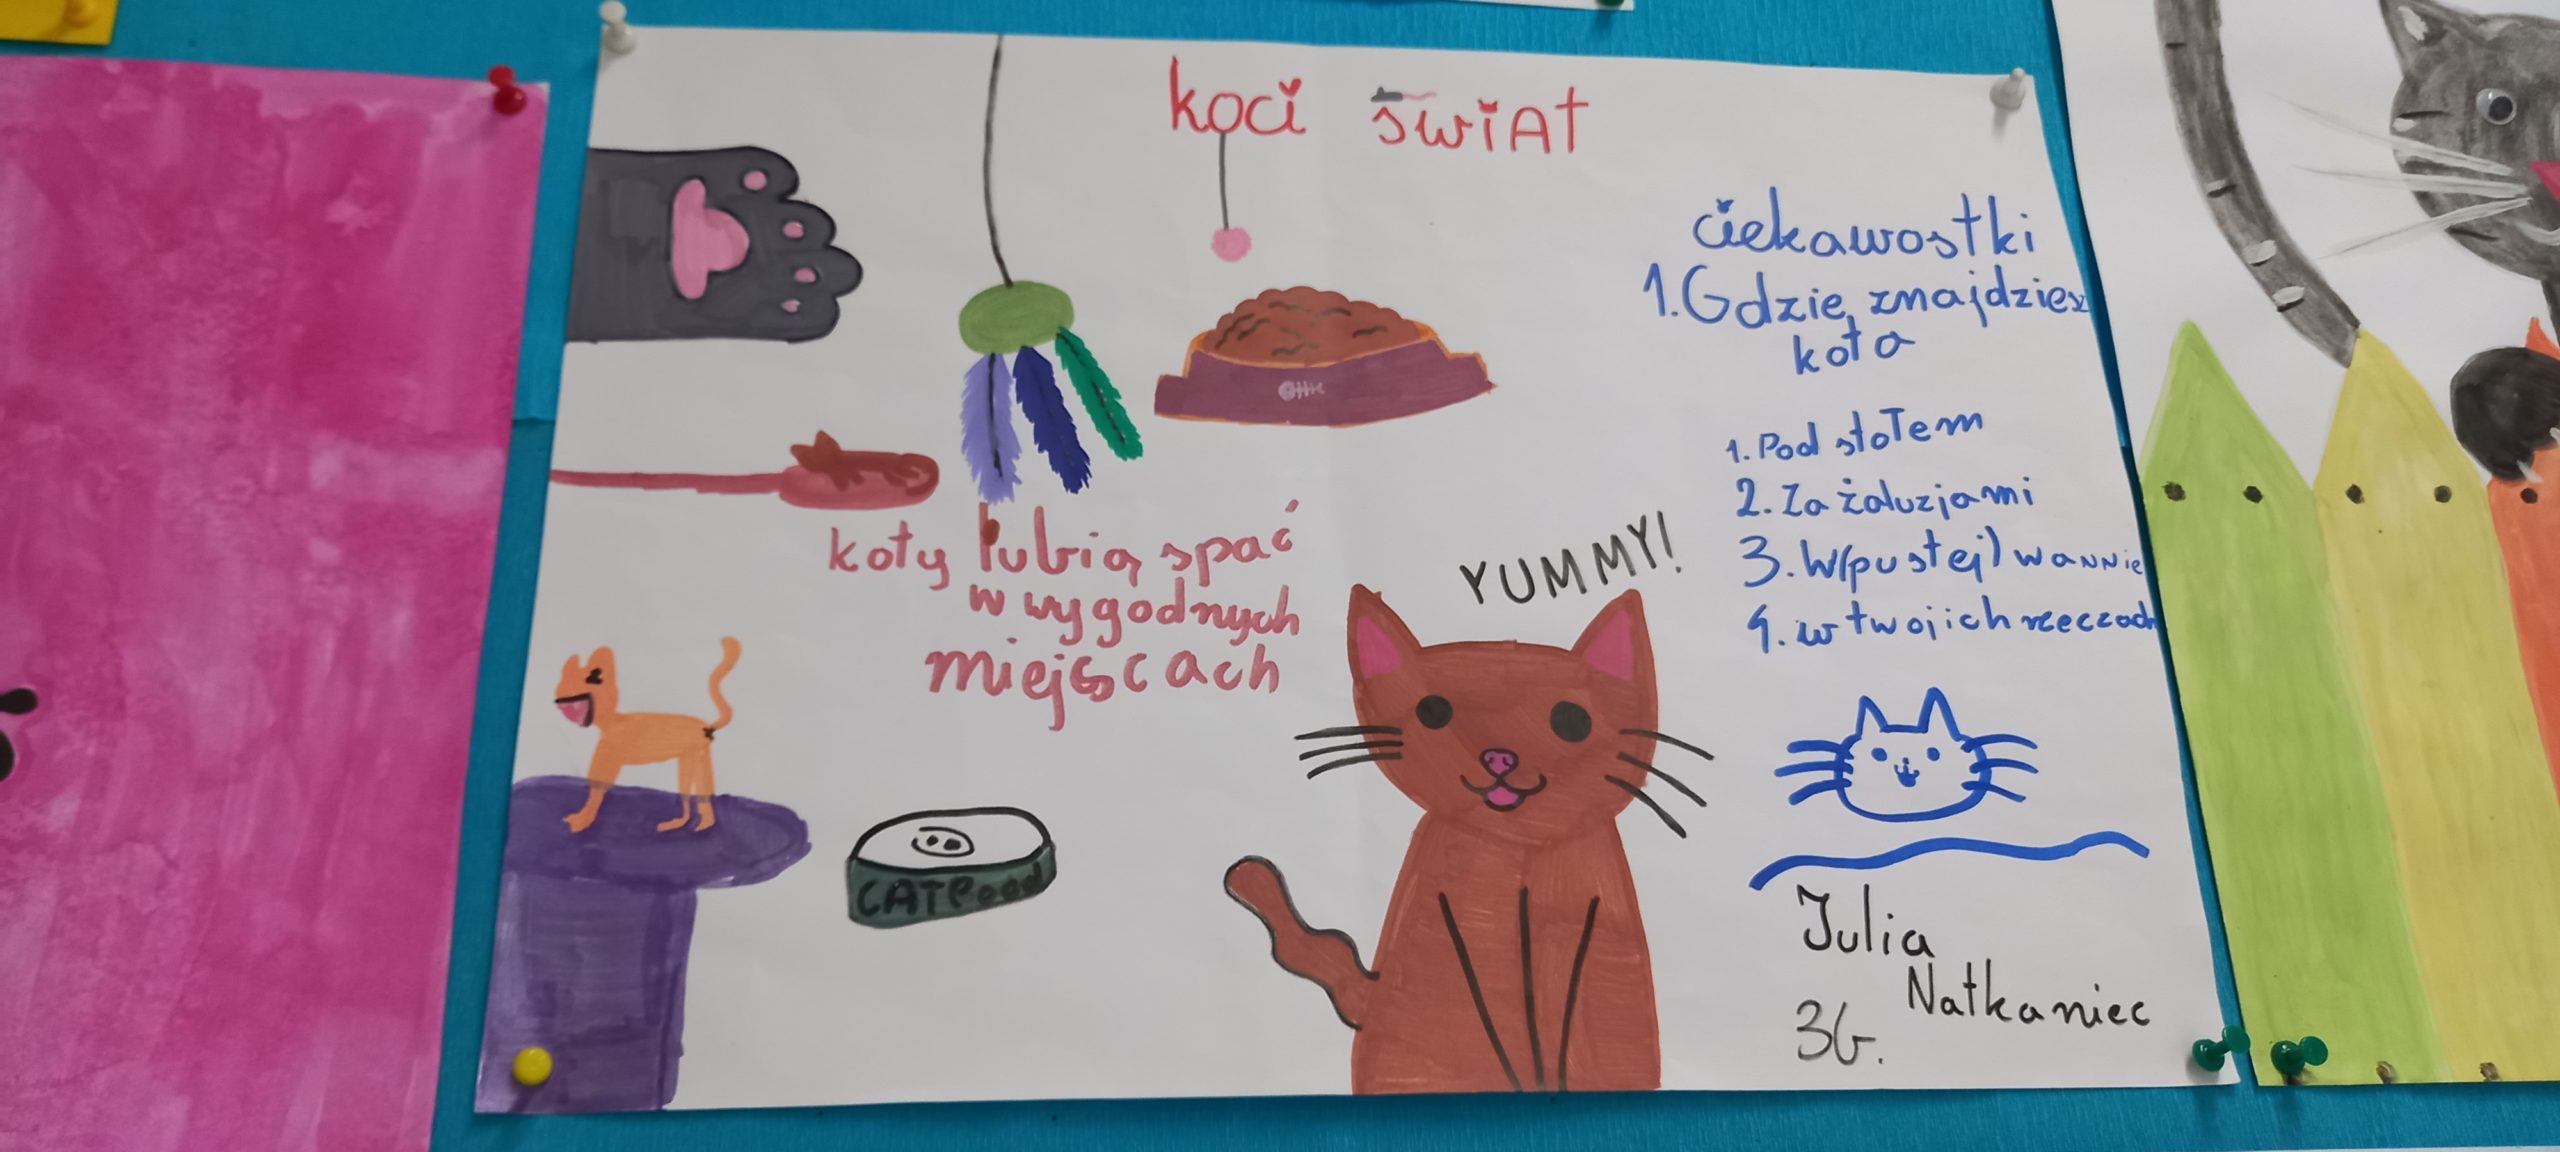 koci świat
ciekawostki
1. Gdzie znajdziesz
kota
1. Pod stołem
2. Za żaluzjami
3. W (pustej) wannie
4. w twojich rzeczach
koty lubią spać
w wygodnych
miejscach
YUMMY!
CATFood
Julia
Natkaniec
3G.